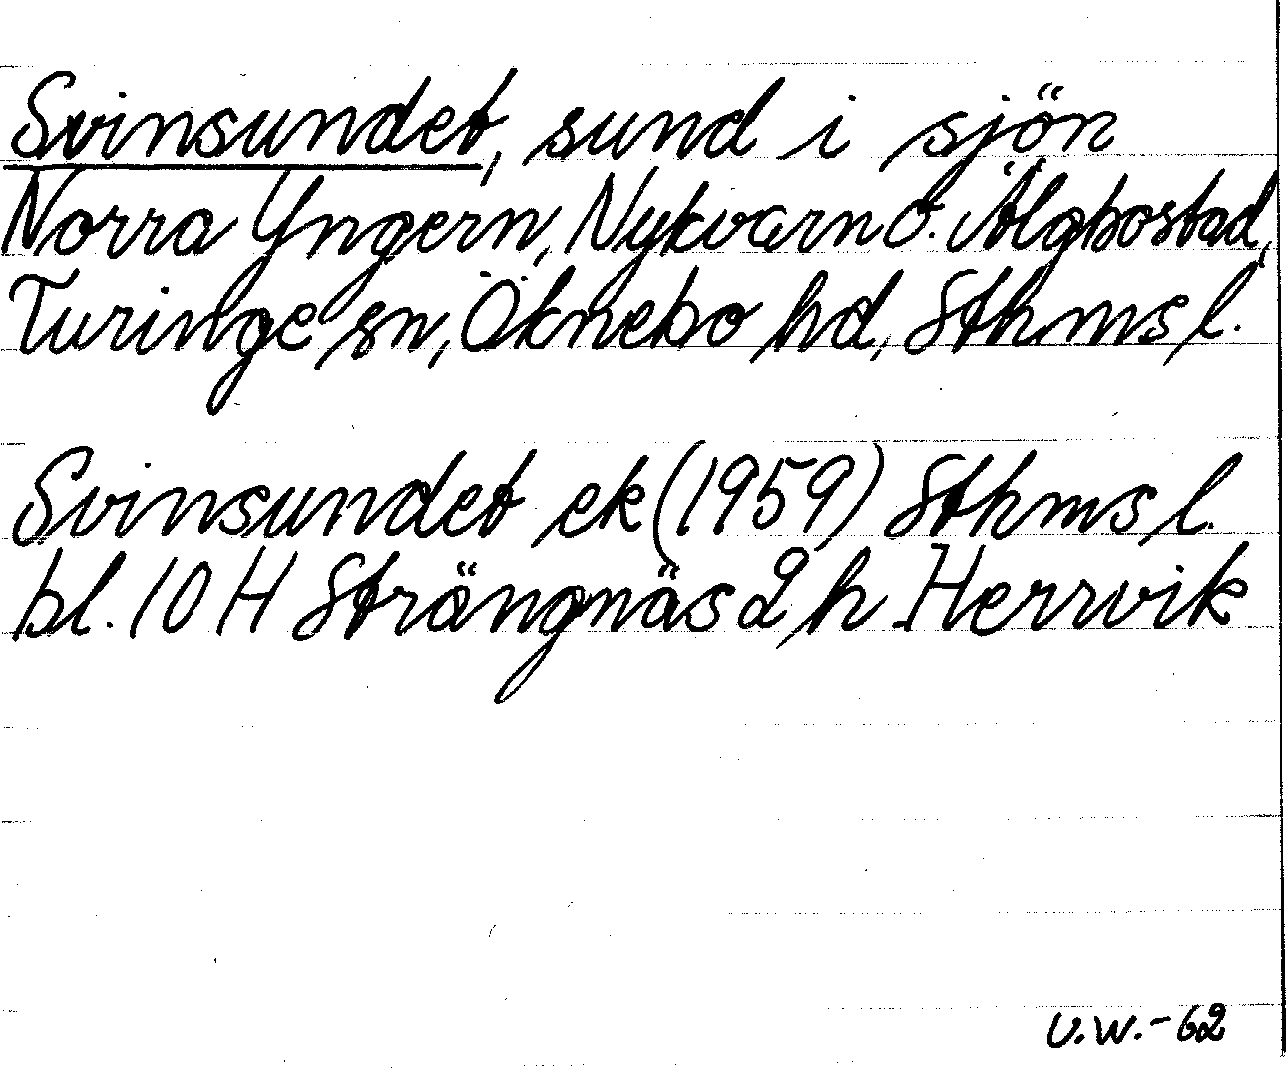 Svinsundet, sund i sjön
Norra Yngern, Nykvarn o. Älgbostad,
Turinge sn, Öknebo hd, Sthms l.
Svinsundet ek (1959) Sthms l.
bl. 10 H Strängnäs 2 h Herrvik
U.W.-62